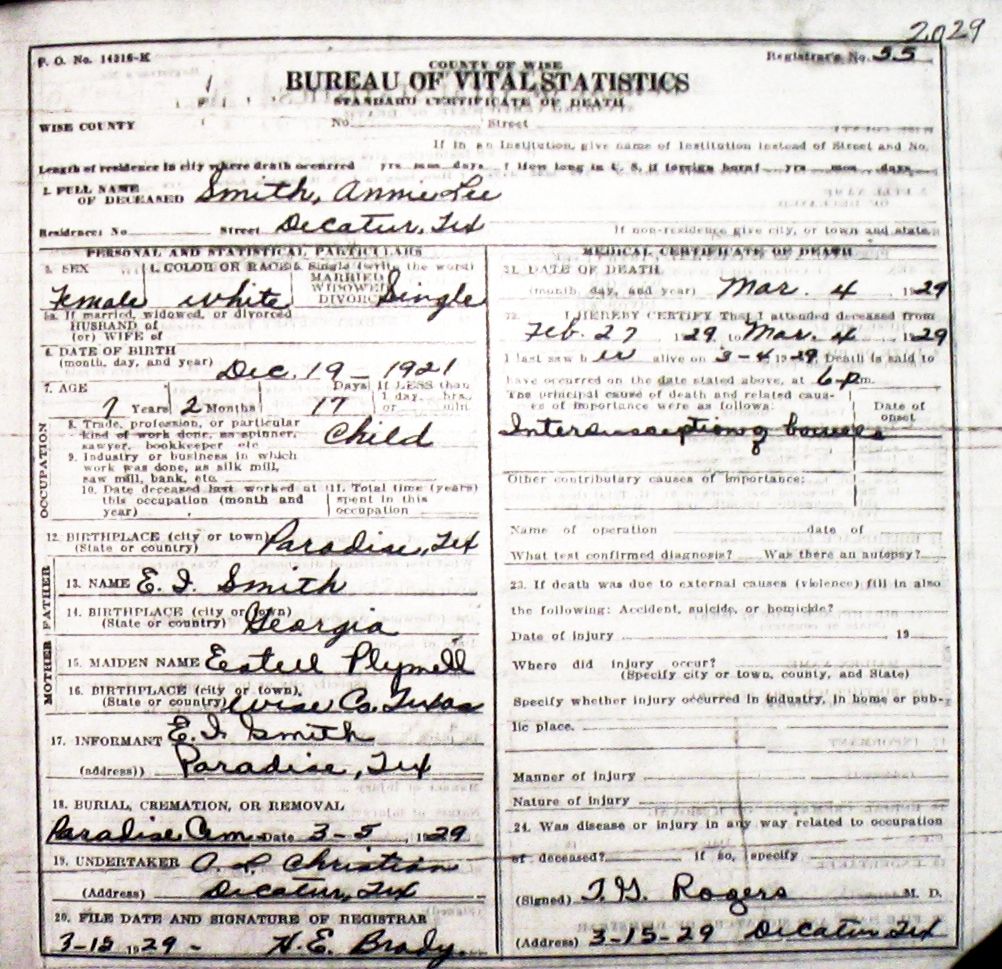 2029
F. O. No. 14316-K
COUNTY OF WISE
Registrar's No. 55
BUREAU OF VITAL STATISTICS
STANDARD CERTIFICATE OF DEATH
WISE COUNTY No. Street
If in an Institution, give name of Institution instead of Street and No.
Length of residence in city where death occurred yrs. mos. days. How long in U. S. if foreign born? yrs. mos. days.
2. FULL NAME OF DECEASED Smith, Annie Lee
Residence: No. Street Decatur, Tex If non-residence give city, or town and state.
PERSONAL AND STATISTICAL PARTICULARS
3. SEX Female
4. COLOR OR RACE White
5. Single (write the word)
MARRIED
WIDOWED
DIVORCED Single
5a. If married, widowed, or divorced
HUSBAND of
(or) WIFE of
6. DATE OF BIRTH
(month, day, and year) Dec. 19 - 1921
7. AGE 7 Years 2 Months 17 Days If LESS than
1 day, hrs.
or min.
OCCUPATION
8. Trade, profession, or particular
kind of work done, as spinner,
sawyer, bookkeeper etc. Child
9. Industry or business in which
work was done, as silk mill,
saw mill, bank, etc.
10. Date deceased last worked at
this occupation (month and
year)
11. Total time (years)
spent in this
occupation
12. BIRTHPLACE (city or town)
(State or country) Paradise, Tex
FATHER
13. NAME E. I. Smith
14. BIRTHPLACE (city or town)
(State or country) Georgia
MOTHER
15. MAIDEN NAME Estell Plymell
16. BIRTHPLACE (city or town),
(State or country) Wise Co. Texas
17. INFORMANT E. I. Smith
(address) Paradise, Tex
18. BURIAL, CREMATION, OR REMOVAL
Paradise Cem. Date 3-5, 1929
19. UNDERTAKER Christian
(Address) Decatur, Tex
20. FILE DATE AND SIGNATURE OF REGISTRAR
1929 - H. E. Brady.
MEDICAL CERTIFICATE OF DEATH
21. DATE OF DEATH
(month, day, and year) Mar. 4, 1929
22. I HEREBY CERTIFY That I attended deceased from
Feb. 27 1929, to Mar. 4 1929
I last saw her alive on 3-4 1929, Death is said to
have occurred on the date stated above, at 6-p m.
The principal cause of death and related causes of importance were as follows:
Date of
onset
Intersusception of bowels
Other contributary causes of importance:
Name of operation date of
What test confirmed diagnosis? Was there an autopsy?
23. If death was due to external causes (violence) fill in also
the following: Accident, suicide, or homicide?
Date of injury 19
Where did injury occur?
(Specify city or town, county, and State)
Specify whether injury occurred in industry, in home or pub-
lic place.
Manner of injury
Nature of injury
24. Was disease or injury in any way related to occupation
of deceased? if so, specify
(Signed) T. G. Rogers M. D.
(Address) 3-15-29 Decatur Tex